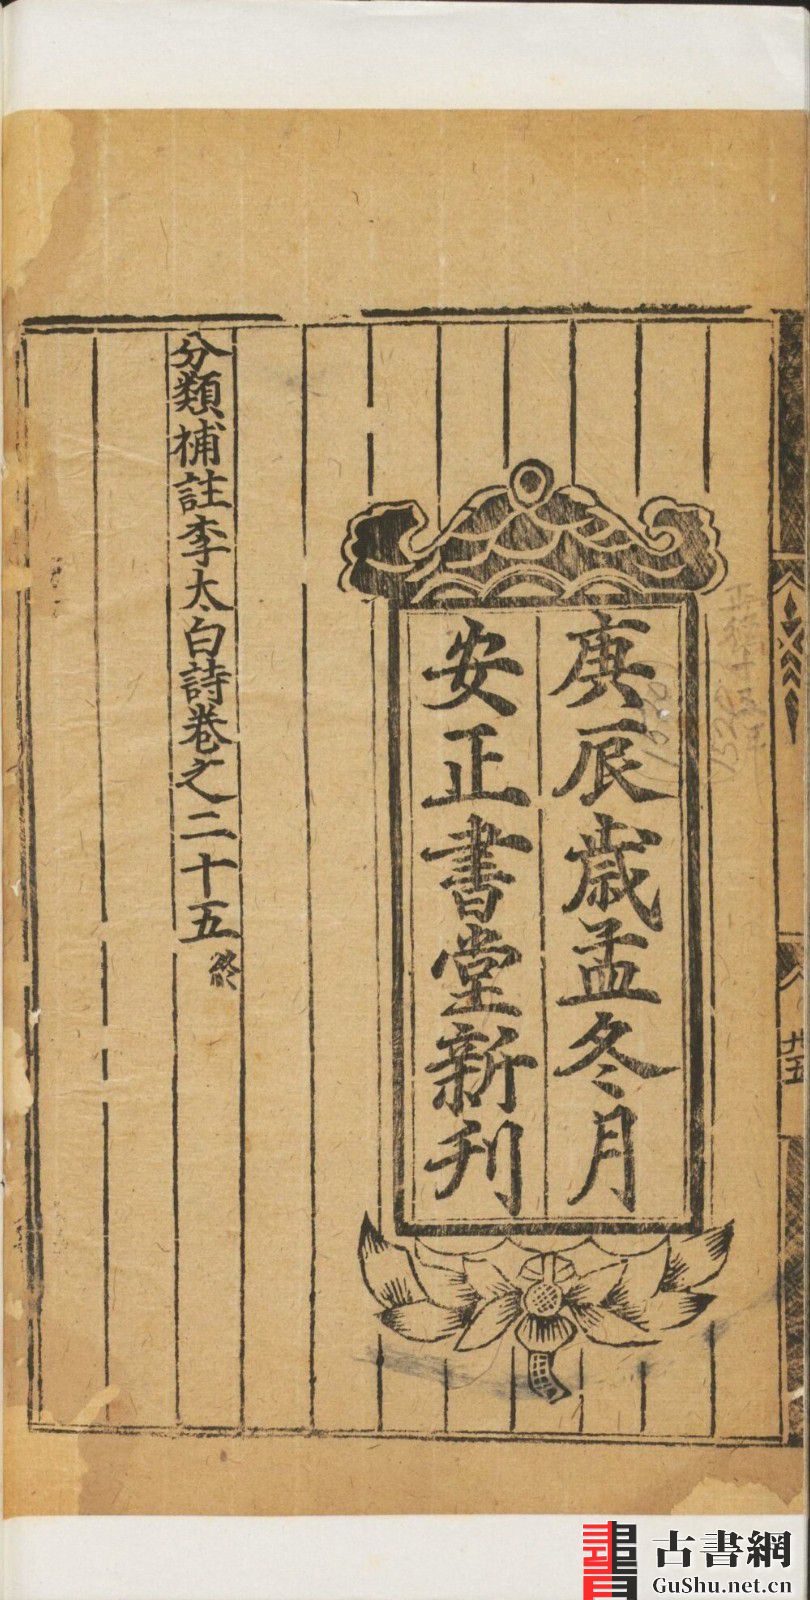 庚辰歲孟冬月
安正書堂新刊
分類補註李太白詩卷之二十五 終
廿五
正德十五年
1520
古書網
GuShu.net.cn